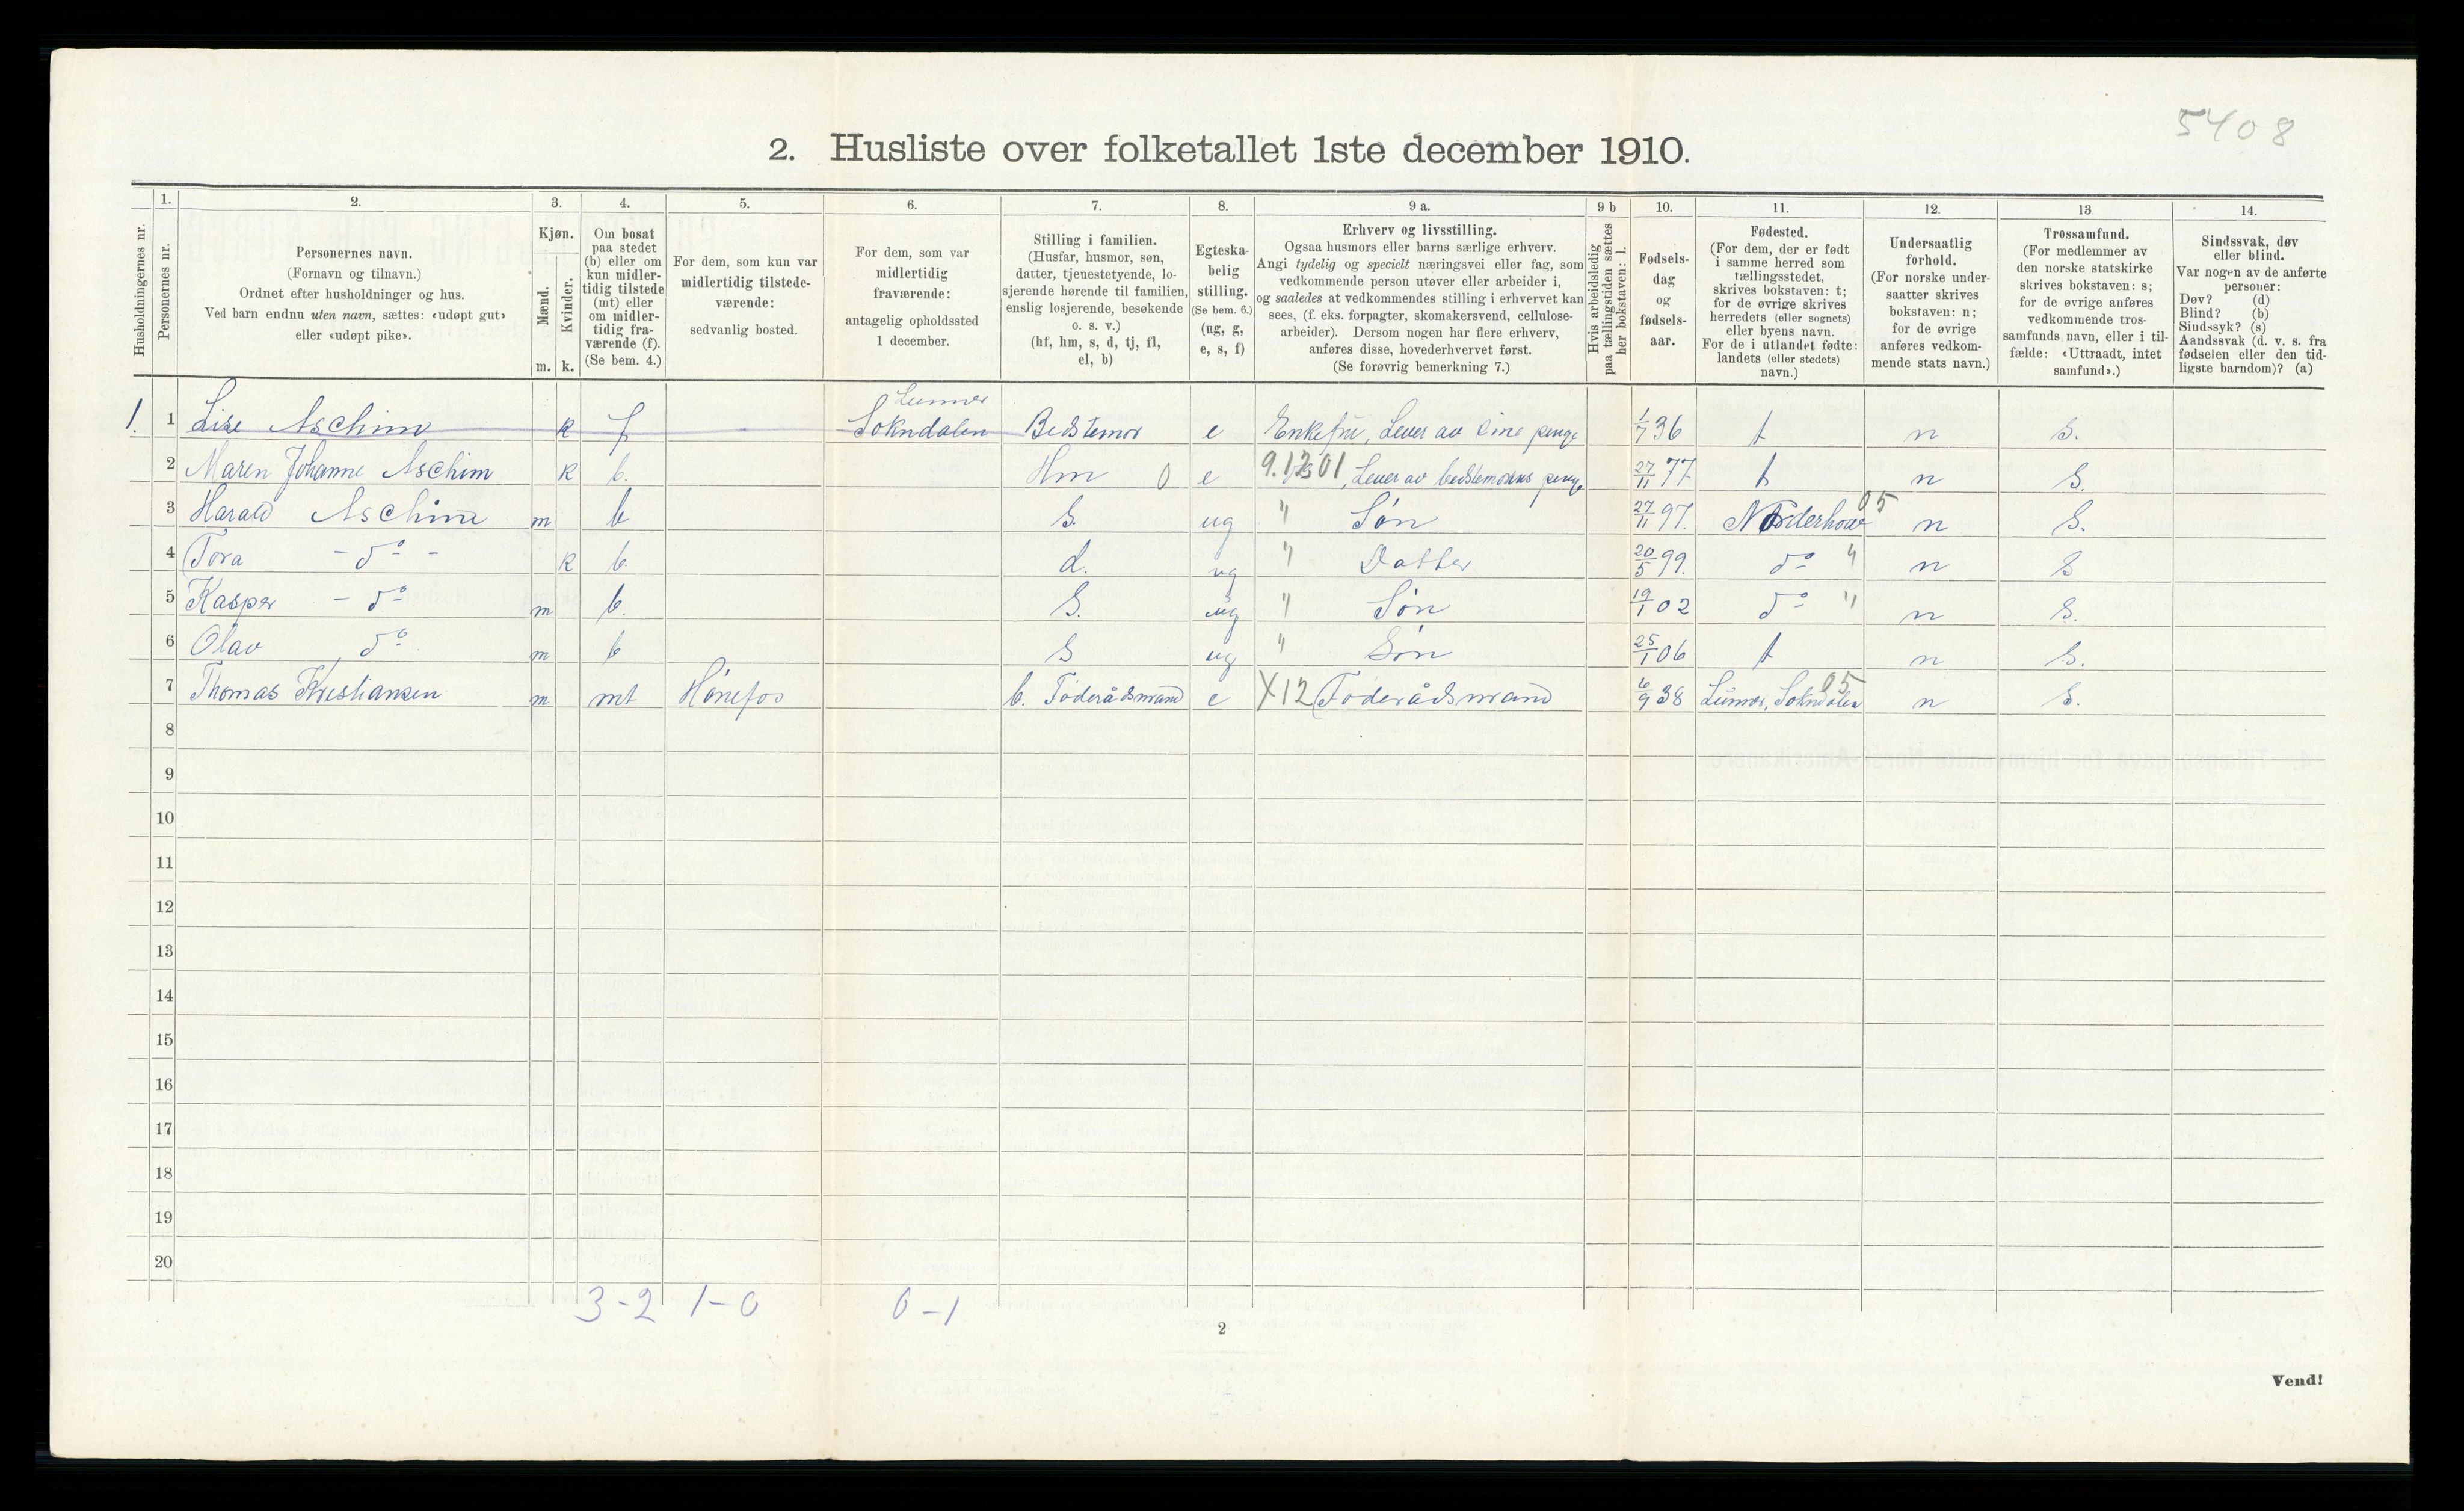 5408
2. Husliste over folketallet 1ste december 1910.
Husholdningernes nr.
1. Personernes nr.
2. Personernes navn.
(Fornavn og tilnavn.)
Ordnet efter husholdninger og hus.
Ved barn endnu uten navn, sættes: «udøpt gut»
eller «udøpt pike».
3. Kjøn.
Mænd. m.
Kvinder. k.
4. Om bosat
paa stedet
(b) eller om
kun midler-
tidig tilstede
(mt) eller
om midler-
tidig fra-
værende (f).
(Se bem. 4.)
5. For dem, som kun var
midlertidig tilstede-
værende:
sedvanlig bosted.
6. For dem, som var
midlertidig
fraværende:
antagelig opholdssted
1 december.
7. Stilling i familien.
(Husfar, husmor, søn,
datter, tjenestetyende, lo-
sjerende hørende til familien,
enslig losjerende, besøkende
o. s. v.)
(hf, hm, s, d, tj, fl,
el, b)
8. Egteska-
belig
stilling.
(Se bem. 6.)
(ug, g,
e, s, f)
9 a. Erhverv og livsstilling.
Ogsaa husmors eller barns særlige erhverv.
Angi tydelig og specielt næringsvei eller fag, som
vedkommende person utøver eller arbeider i,
og saaledes at vedkommendes stilling i erhvervet kan
sees, (f. eks. forpagter, skomakersvend, cellulose-
arbeider). Dersom nogen har flere erhverv,
anføres disse, hovederhvervet først.
(Se forøvrig bemerkning 7.)
9 b Hvis arbeidsledig
paa tællingstiden sættes
her bokstaven: l.
10. Fødsels-
dag
og
fødsels-
aar.
11. Fødested.
(For dem, der er født
i samme herred som
tællingsstedet,
skrives bokstaven: t;
for de øvrige skrives
herredets (eller sognets)
eller byens navn.
For de i utlandet fødte:
landets (eller stedets)
navn.)
12. Undersaatlig
forhold.
(For norske under-
saatter skrives
bokstaven: n;
for de øvrige
anføres vedkom-
mende stats navn.)
13. Trossamfund.
(For medlemmer av
den norske statskirke
skrives bokstaven: s;
for de øvrige anføres
vedkommende tros-
samfunds navn, eller i til-
fælde: «Uttraadt, intet
samfund».)
14. Sindssvak, døv
eller blind.
Var nogen av de anførte
personer:
Døv? (d)
Blind? (b)
Sindssyk? (s)
Aandssvak (d. v. s. fra
fødselen eller den tid-
ligste barndom)? (a)
Lunner
1. 1 Lise Aschim k f Sokndalen Bedstemor e Enkefru, Lever av sine penge 1/7 36 t n S.
2 Maren Johanne Aschim k b. Hm 0 e 9.1 01, Lever av bedstemorens penge 27/11 77 t n S.
3 Harald Aschim m b S. ug " Søn 27/11 97. Norderhov 05 n S.
4 Tora - do - k b. d. ug " Datter 20/5 99. do " n S
5 Kasper - do m b. S. ug " Søn 19/1 02 do " n S.
6 Olav do m b S ug " Søn 25/1 06 t n S.
7 Thomas Kristiansen m mt Hønefos b. Føderådsmand e X12 Føderådsmand 6/9 38 Lunner, Sokndalen 05 n S.
8
9
10
11
12
13
14
15
16
17
18
19
20
3-2 1-0 0-1
2
Vend!